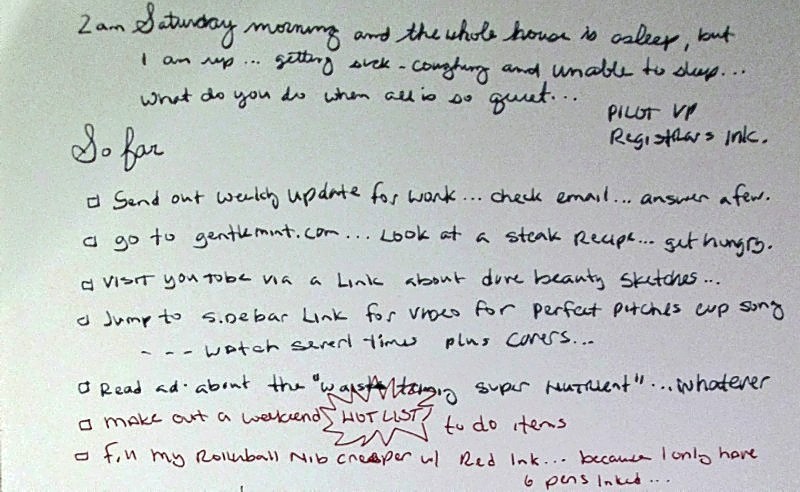 2 am Saturday morning and the whole house is asleep, but
I am up... getting sick - coughing and unable to sleep...
what do you do when all is so quiet...
PILOT VP
Registrars Ink.
So far
□ Send out weekly update for work... check email... answer a few.
□ go to gentlemint.com... Look at a steak Recipe... get hungry.
□ visit youtube via a Link about dove beauty sketches...
□ Jump to sidebar Link for video for perfect pitches cup song
- - - watch severl times plus covers...
□ Read ad. about the "waist taming super nutrient"... whatever
□ make out a weekend HOT LIST to do items
□ fill my Rollerball Nib creaper w/ Red Ink... because I only have
6 pens inked...